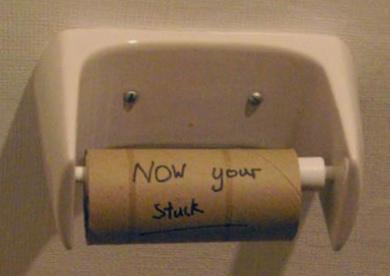 NOW your
stuck